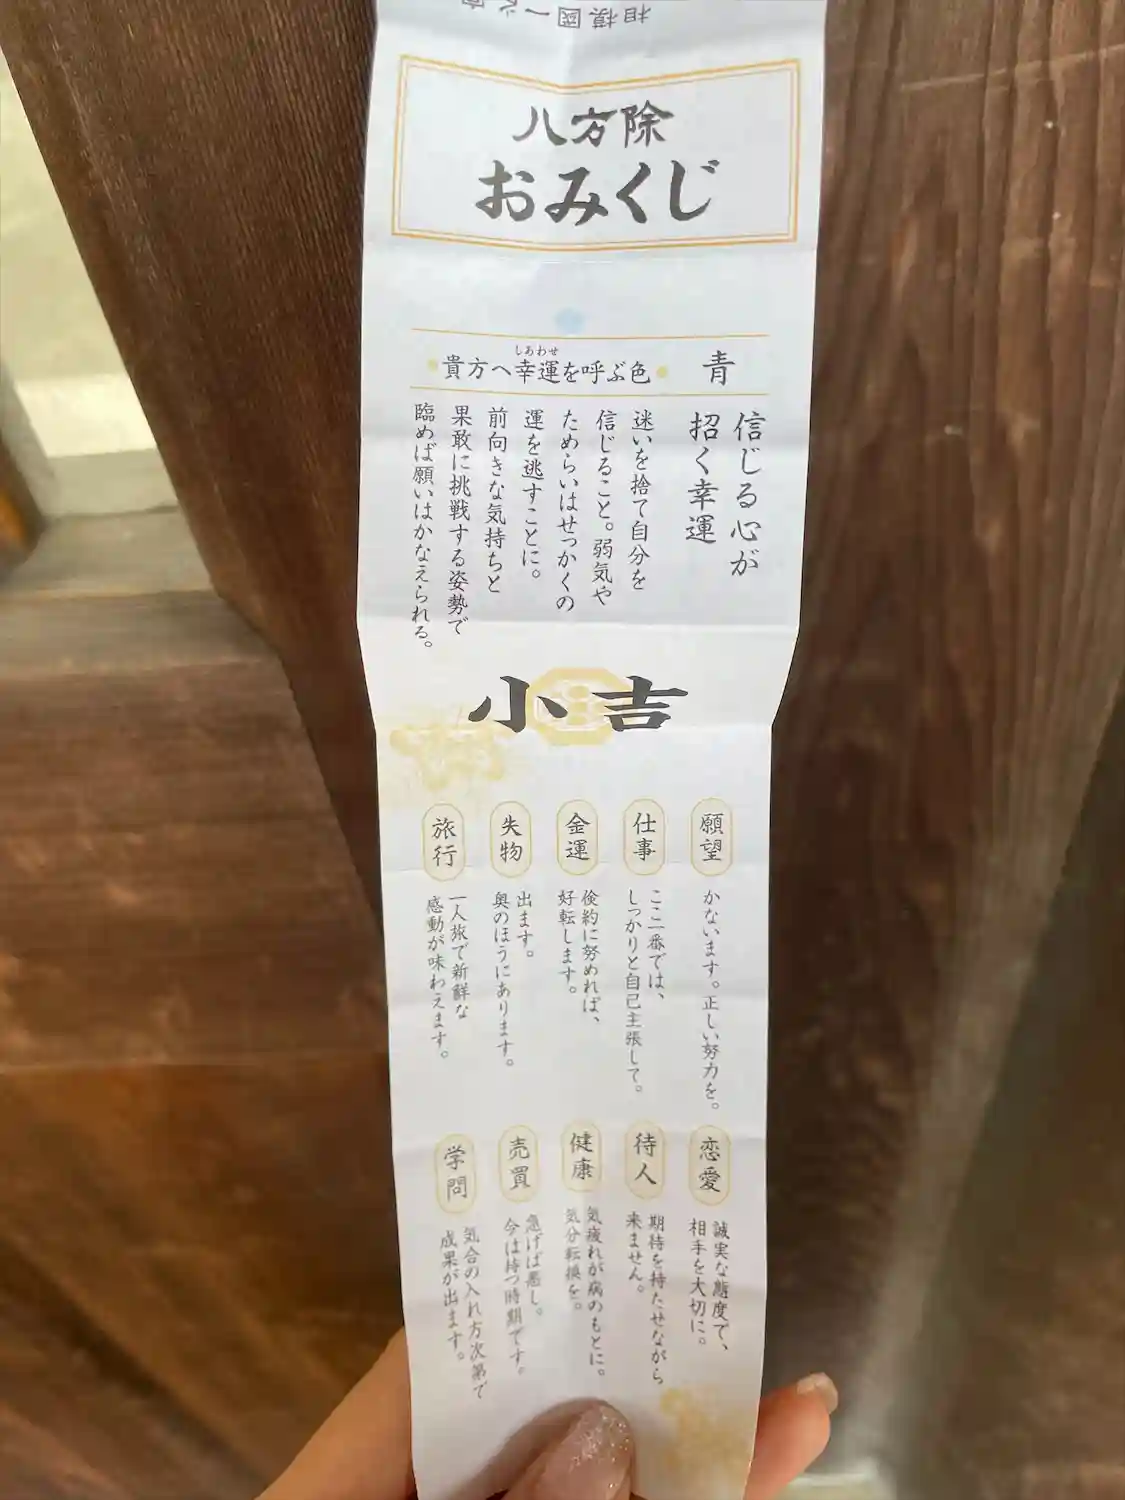 相模國一之宮
八方除
おみくじ
貴方へ幸運を呼ぶ色
しあわせ
青
信じる心が
招く幸運
迷いを捨て自分を
信じること。弱気や
ためらいはせっかくの
運を逃すことに。
前向きな気持ちと
果敢に挑戦する姿勢で
臨めば願いはかなえられる。
小吉
願望
かないます。正しい努力を。
仕事
ここ一番では、
しっかりと自己主張して。
金運
倹約に努めれば、
好転します。
失物
出ます。
奥のほうにあります。
旅行
一人旅で新鮮な
感動が味わえます。
恋愛
誠実な態度で、
相手を大切に。
待人
期待を持たせながら
来ません。
健康
気疲れが病のもとに。
気分転換を。
売買
急げば悪し。
今は待つ時期です。
学問
気合の入れ方次第で
成果が出ます。